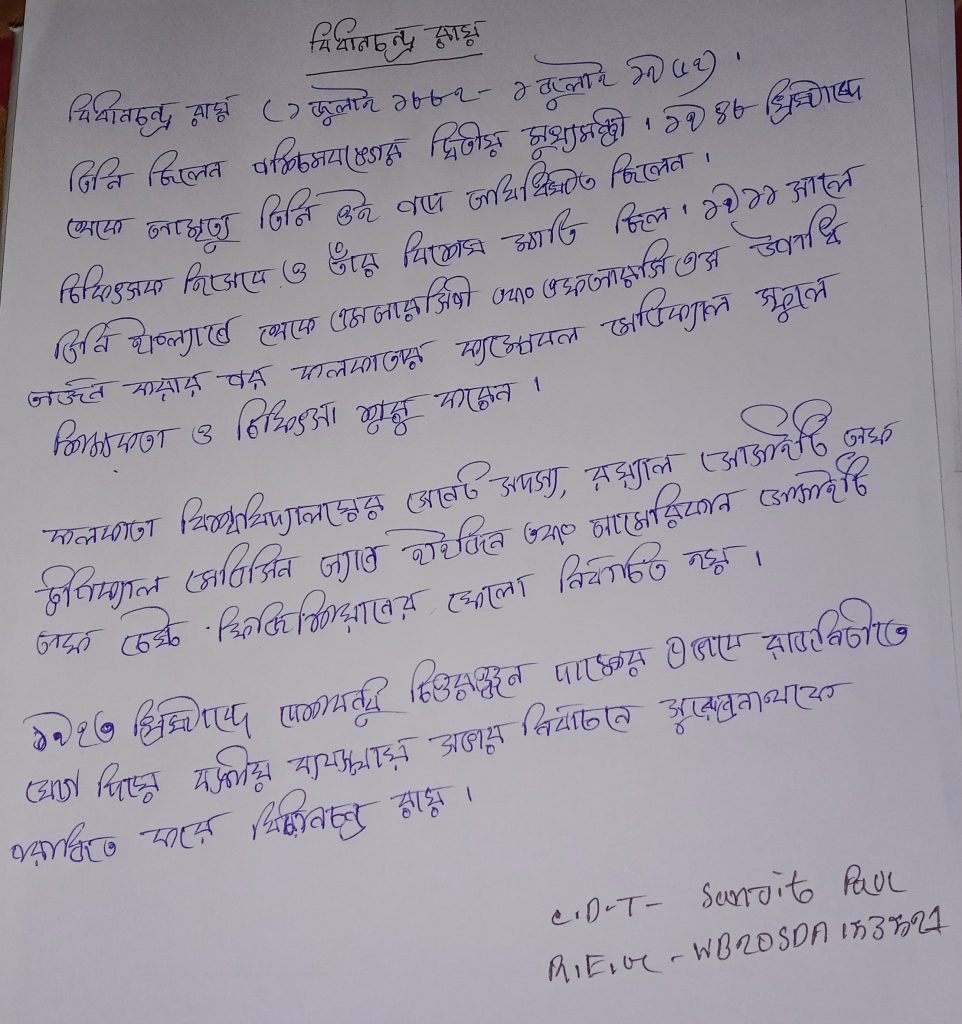 বিধানচন্দ্র রায়
বিধানচন্দ্র রায় (১ জুলাই ১৮৮২ - ১ জুলাই ১৯৬২) ।
তিনি ছিলেন পশ্চিমবঙ্গের দ্বিতীয় মুখ্যমন্ত্রী । ১৯৪৮ খ্রিষ্টাব্দে
থেকে আমৃত্যু তিনি ওই পদে অধিষ্ঠিত ছিলেন ।
চিকিৎসক হিসেবে ও তাঁর বিশেষ খ্যাতি ছিল । ১৯১১ সালে
তিনি ইংল্যান্ড থেকে এমআরসিপি এবং এফআরসিএস উপাধি
অর্জন করার পর কলকাতার ক্যাম্বেল মেডিক্যাল স্কুলে
শিক্ষকতা ও চিকিৎসা শুরু করেন ।
কলকাতা বিশ্ববিদ্যালয়ের সেনেট সদস্য, রয়্যাল সোসাইটি অফ
ট্রপিক্যাল মেডিসিন অ্যান্ড হাইজিন এবং আমেরিকান সোসাইটি
অফ চেস্ট ফিজিশিয়ানের ফেলো নির্বাচিত হয় ।
১৯২৩ খ্রিষ্টাব্দে দেশবন্ধু চিত্তরঞ্জন দাশের প্রভাবে রাজনিতীতে
যোগ দিয়ে বঙ্গীয় ব্যবস্থায় সভার নির্বাচনে সুরেন্দ্রনাথকে
পরাজিত করে বিধানচন্দ্র রায় ।
C.D.T - Sanjit Paul